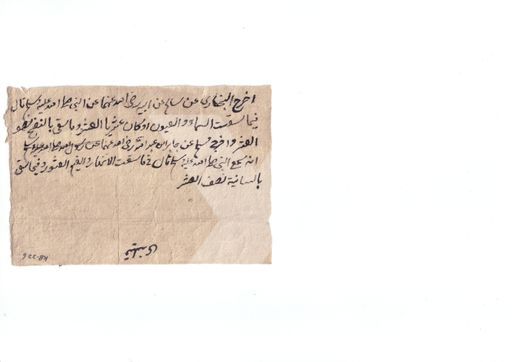 اخرج البخاري عن سالم عن ابيه رضي الله عنهما عن النبي صلى الله عليه وسلم قال
فيما سقت السماء والعيون او كان عثريا العشر وما سقي بالنضح نصف
العشر واخرج مسلم عن جابر بن عبد الله رضي الله عنهما عن رسول الله صلى الله عليه وسلم
انه سمع النبي صلى الله عليه وسلم قال فيما سقت الانهار والغيم العشور وفيما سقي
بالسانية نصف العشر